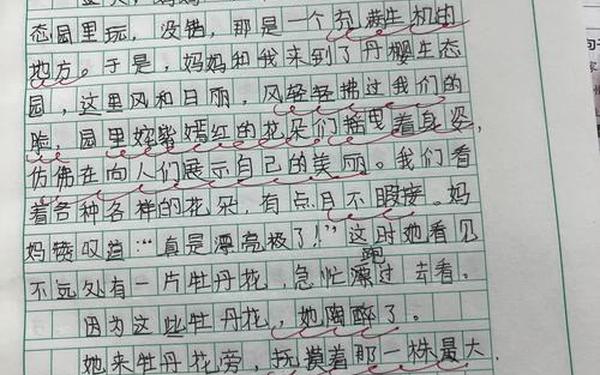 态园里玩，没错，那是一个充满生机的
地方。于是，妈妈和我来到了丹樱生态
园，这里风和日丽，风轻轻拂过我们的
脸，园里姹紫嫣红的花朵们摇曳着身姿，
仿佛在向人们展示自己的美丽。我们看
着各种各样的花朵，有点目不暇接。妈
妈赞叹道：“真是漂亮极了！”这时她看见
跑
不远处有一片牡丹花，急忙过去看。
因为这些牡丹花，她陶醉了。
她来牡丹花旁，抚摸着那一株最大